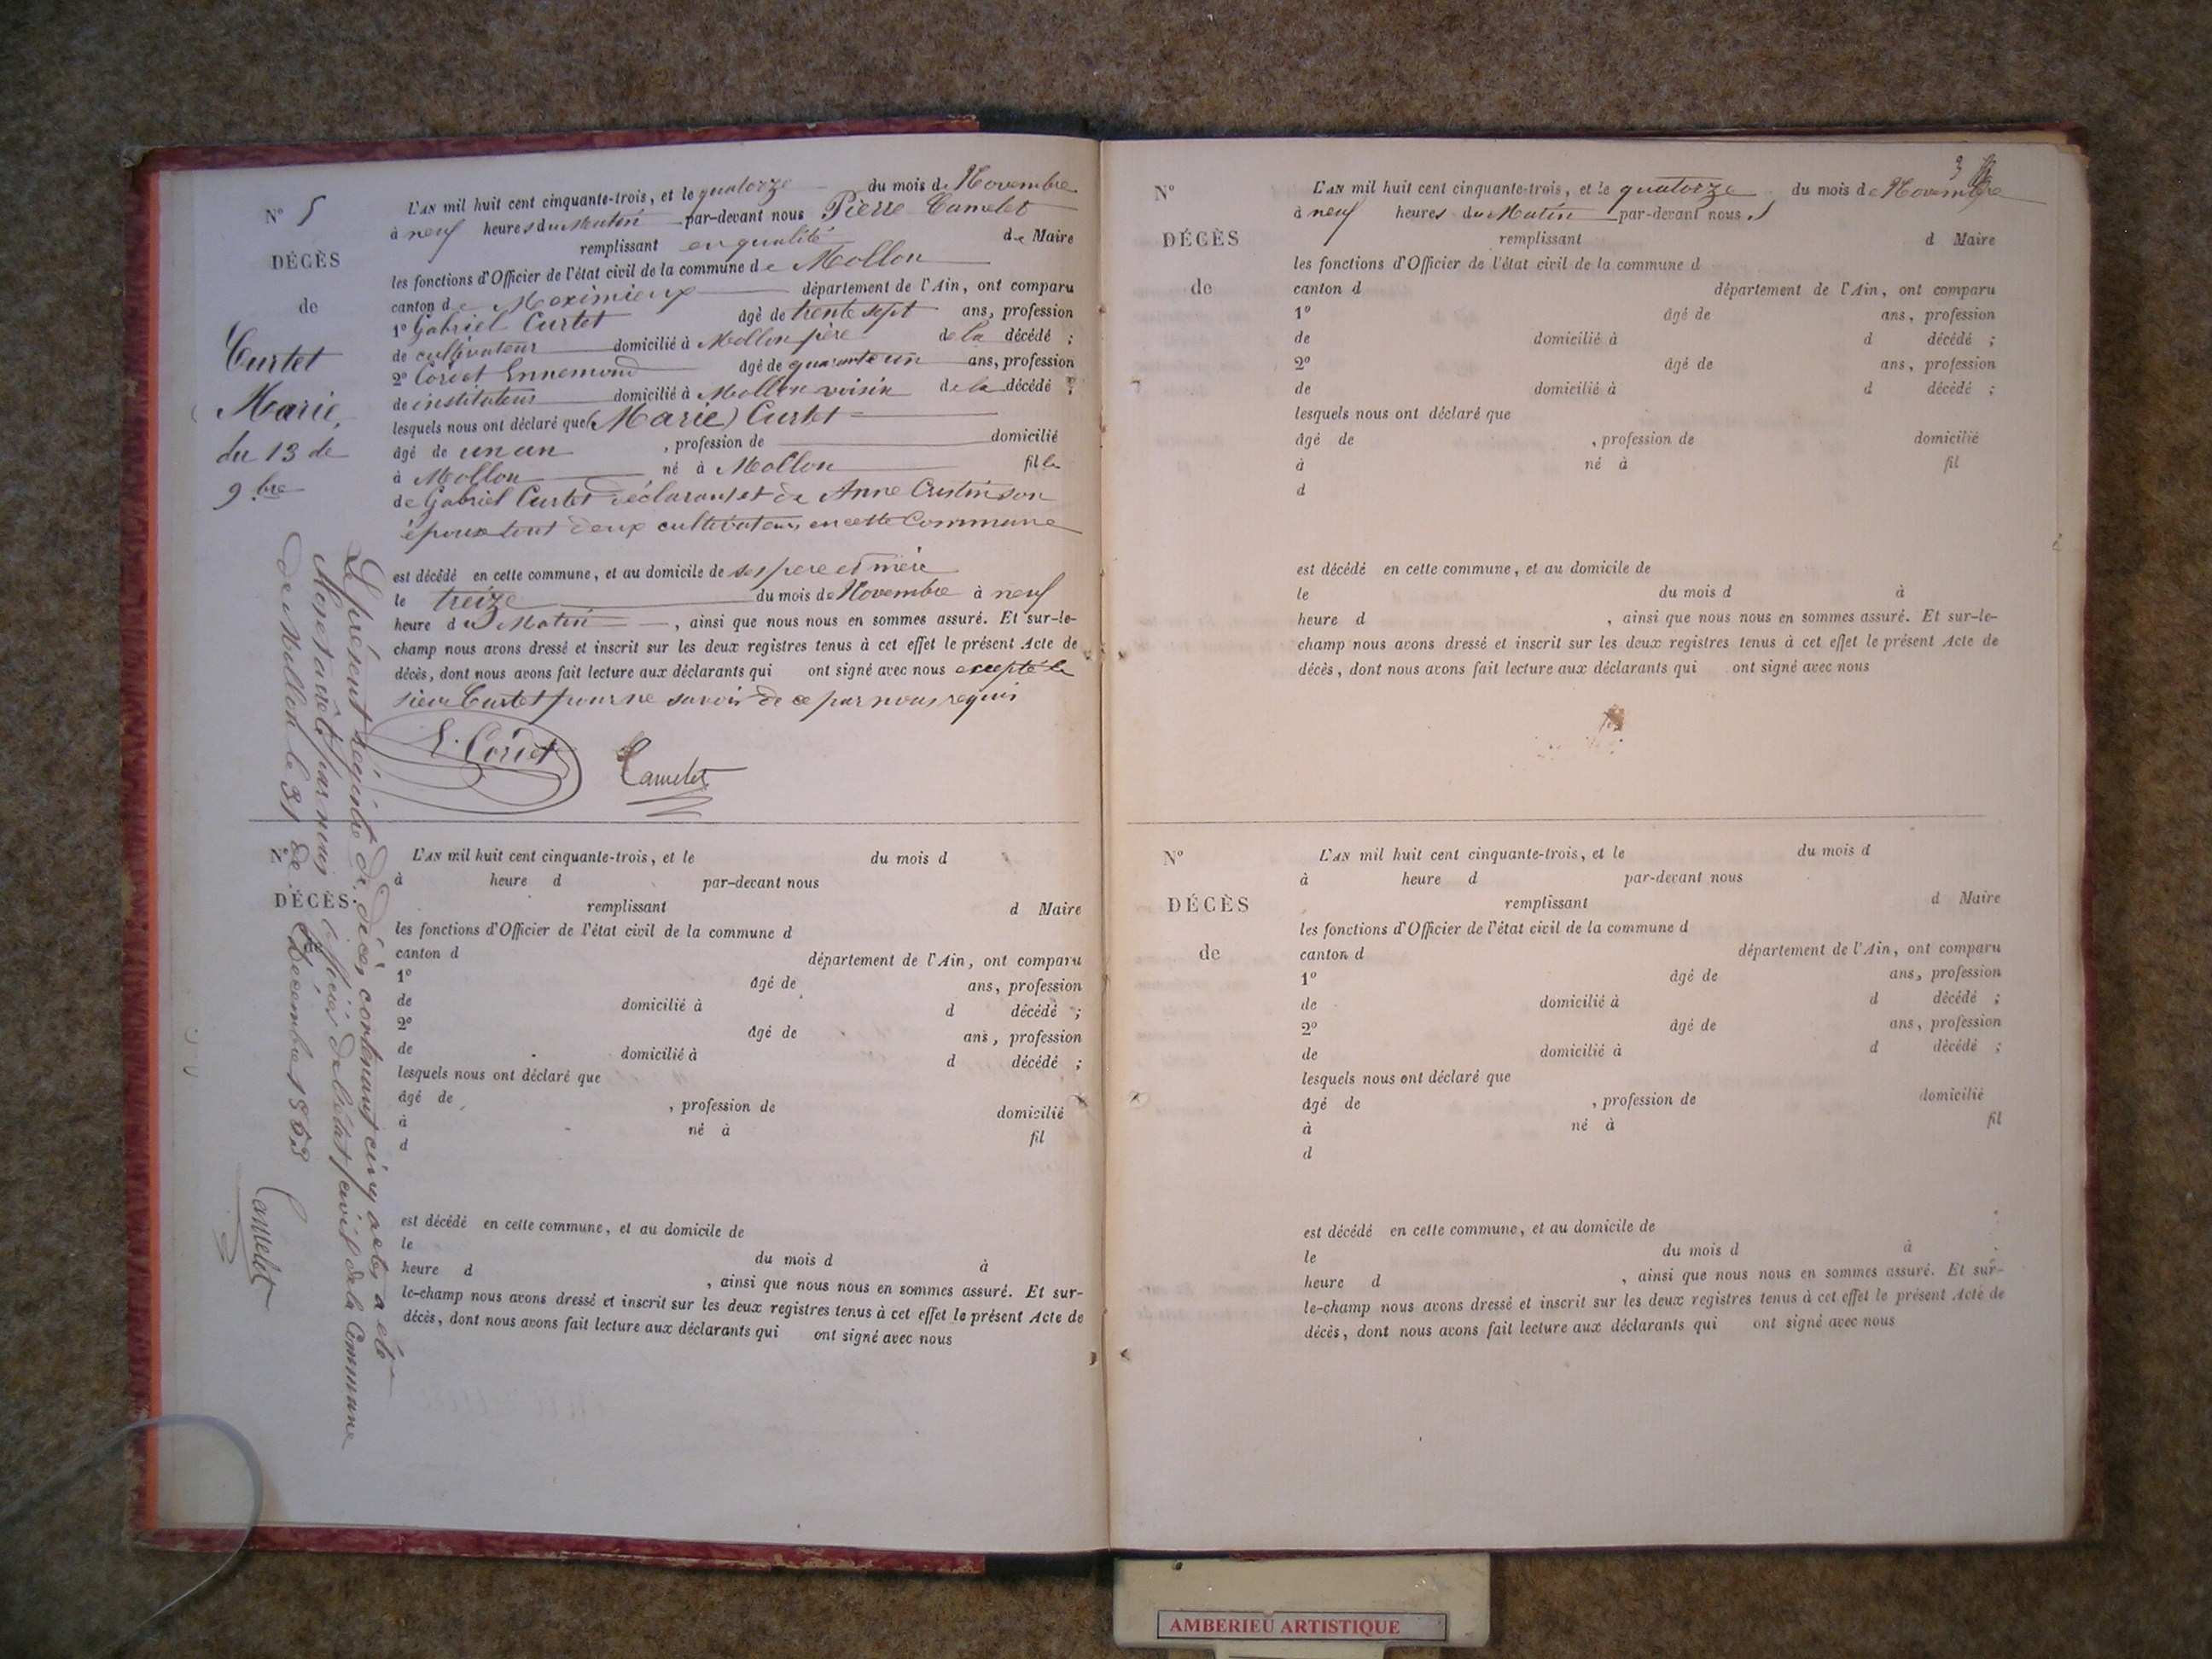 N° 5
DÉCÈS
de
Curtet
Marie,
du 13 de
9.bre
L'AN mil huit cent cinquante-trois, et le quatorze du mois de Novembre
à neuf heures du Matin par-devant nous Pierre Camelet
remplissant en qualité de Maire
les fonctions d'Officier de l'état civil de la commune de Mollon
canton de Meximieux département de l'Ain, ont comparu
1° Gabriel Curtet âgé de trente sept ans, profession
de cultivateur domicilié à Mollon père de la décédé ;
2° Coriet Ennemond âgé de quarante un ans, profession
de instituteur domicilié à Mollon voisin de la décédé ;
lesquels nous ont déclaré que (Marie) Curtet
âgé de un an , profession de domicilié
à Mollon né à Mollon fille
de Gabriel Curtet déclarant et de Anne
époux tout deux cultivateurs en cette Commune
est décédé en cette commune, et au domicile de ses pere et mère
le treize du mois de Novembre à neuf
heure du Matin , ainsi que nous nous en sommes assuré. Et sur-le-
champ nous avons dressé et inscrit sur les deux registres tenus à cet effet le présent Acte de
décès, dont nous avons fait lecture aux déclarants qui ont signé avec nous excepté le
sieur Curtet pour ne savoir de ce par nous requis
E. Coriet
Camelet
Le présent registre de décès contenant cinq actes a été
clos et arrêté par nous officier de l'état civil de la Commune
de Mollon le 31 de Décembre 1853
Camelet
N°
DÉCÈS
L'AN mil huit cent cinquante-trois, et le du mois d
à heure d par-devant nous
remplissant d Maire
les fonctions d'Officier de l'état civil de la commune d
canton d département de l'Ain, ont comparu
1° âgé de ans, profession
de domicilié à d décédé ;
2° âgé de ans, profession
de domicilié à d décédé ;
lesquels nous ont déclaré que
âgé de , profession de domicilié
à né à fil
d
est décédé en cette commune, et au domicile de
le du mois d à
heure d , ainsi que nous nous en sommes assuré. Et sur-
le-champ nous avons dressé et inscrit sur les deux registres tenus à cet effet le présent Acte de
décès, dont nous avons fait lecture aux déclarants qui ont signé avec nous
3
N°
DÉCÈS
de
L'AN mil huit cent cinquante-trois, et le quatorze du mois de Novembre
à neuf heures du Matin par-devant nous
remplissant d Maire
les fonctions d'Officier de l'état civil de la commune d
canton d département de l'Ain, ont comparu
1° âgé de ans, profession
de domicilié à d décédé ;
2° âgé de ans, profession
de domicilié à d décédé ;
lesquels nous ont déclaré que
âgé de , profession de domicilié
à né à fil
d
est décédé en cette commune, et au domicile de
le du mois d à
heure d , ainsi que nous nous en sommes assuré. Et sur-le-
champ nous avons dressé et inscrit sur les deux registres tenus à cet effet le présent Acte de
décès, dont nous avons fait lecture aux déclarants qui ont signé avec nous
N°
DÉCÈS
de
L'AN mil huit cent cinquante-trois, et le du mois d
à heure d par-devant nous
remplissant d Maire
les fonctions d'Officier de l'état civil de la commune d
canton d département de l'Ain, ont comparu
1° âgé de ans, profession
de domicilié à d décédé ;
2° âgé de ans, profession
de domicilié à d décédé ;
lesquels nous ont déclaré que
âgé de , profession de domicilié
à né à fil
d
est décédé en cette commune, et au domicile de
le du mois d à
heure d , ainsi que nous nous en sommes assuré. Et sur-
le-champ nous avons dressé et inscrit sur les deux registres tenus à cet effet le présent Acte de
décès, dont nous avons fait lecture aux déclarants qui ont signé avec nous
AMBERIEU ARTISTIQUE